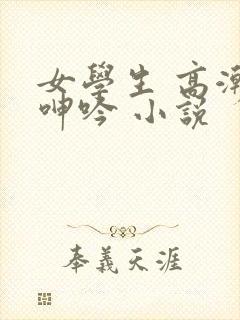 女學生 高潮
呻吟 小説
奉義天涯